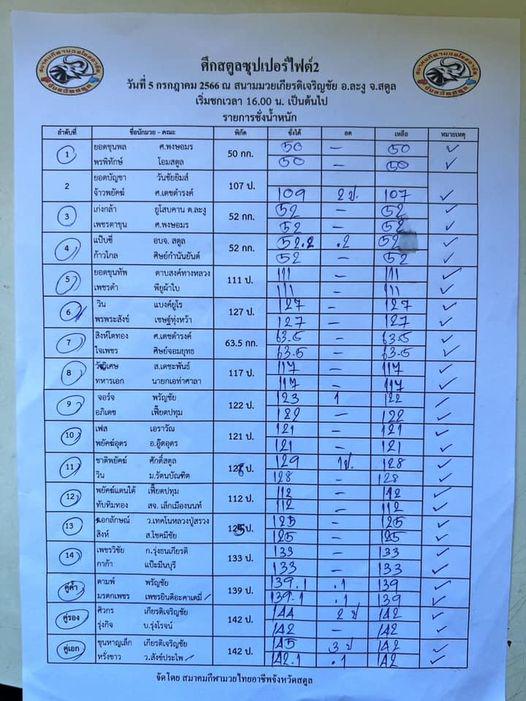 ศึกสตูลซุปเปอร์ไฟต์2
วันที่ 5 กรกฎาคม 2566 ณ สนามมวยเกียรติเจริญชัย อ.ละงู จ.สตูล
เริ่มชกเวลา 16.00 น. เป็นต้นไป
รายการชั่งน้ำหนัก
ลำดับที่ ชื่อนักมวย - คณะ พิกัด ชั่งได้ ลด เหลือ หมายเหตุ
1 ยอดขุนพล ศ.พงษอมร 50 กก. 50 - 50 ✓
พรพิทักษ์ โอมสตูล 50 - 50 ✓
2 ยอดบัญชา วันชัยยิมส์ 107 ป.
จ้าวพยัคฆ์ ศ.เดชดำรงค์ 109 2 ป. 107 ✓
3 เก่งกล้า ยูโสบคาน ต.ละงู 52 กก. 52 - 52 ✓
เพชรตาขุน ศ.พงษอมร 52 - 52 ✓
4 แป๊บซี่ อบจ. สตูล 52 กก. 52.2 .2 52 ✓
ก้าวไกล ศิษย์กำนันยันต์ 52 - 52 ✓
5 ยอดขุนทัพ ดาบสงค์ทางหลวง 111 ป. 111 - 111 ✓
เพชรดำ พียูผ้าใบ 111 - 111 ✓
6 วิน แบงค์ยูไร 127 ป. 127 - 127 ✓
พรพระสังข์ เชษฐ์ทุ่งหว้า 127 - 127 ✓
7 สิงห์ไตทอง ศ.เดชดำรงค์ 63.5 กก. 63.5 - 63.5 ✓
ใจเพชร ศิษย์จอมยุทธ 63.5 - 63.5 ✓
8 ส.เตชะพันธ์ 117 ป. 117 - 117 ✓
ทหารเอก นายกเอท่าศาลา 117 - 117 ✓
9 จอร์จ พรัญชัย 122 ป. 123 1 122 ✓
อภิเดช เฟี้ยตปทุม 122 - 122 ✓
10 เฟส เอราวัณ 121 ป. 121 - 121 ✓
พยัคฆ์อุดร อ.อู๊ดอุดร 121 - 121 ✓
11 ชาติพยัคฆ์ ศักดิ์สตูล 128 ป. 129 1ป. 128 ✓
วิน ม.รัตนบัณฑิต 128 - 128 ✓
12 พยัคฆ์แดนใต้ เฟี้ยตปทุม 112 ป. 112 - 112 ✓
ทับทิมทอง สจ. เล็กเมืองนนท์ 112 - 112 ✓
13 เอกลักษณ์ ว.เทคโนหลวงปู่สรวง 125 ป. 125 - 125 ✓
สิงห์ ส.โชคมีชัย 125 - 125 ✓
14 เพชรวิชัย ก.รุ่งธนเกียรติ 133 ป. 133 - 133 ✓
กาก้า แป๊ะมีนบุรี 133 - 133 ✓
คู่ค้ำ ดามพ์ พรัญชัย 139 ป. 139.1 .1 139 ✓
มรดกเพชร เพชรยินดีอะคาเดมี่ 139.1 .1 139 ✓
คู่รอง ศิวกร เกียรติเจริญชัย 142 ป. 144 2 ป 142 ✓
รุ่งกิจ บ.รุ่งโรจน์ 142 - 142 ✓
คู่เอก ขุนหาญเล็ก เกียรติเจริญชัย 142 ป. 145 3 ป 142 ✓
หรั่งขาว ว.สังข์ประไพ 142.1 .1 142 ✓
จัดโดย สมาคมกีฬามวยไทยอาชีพจังหวัดสตูล